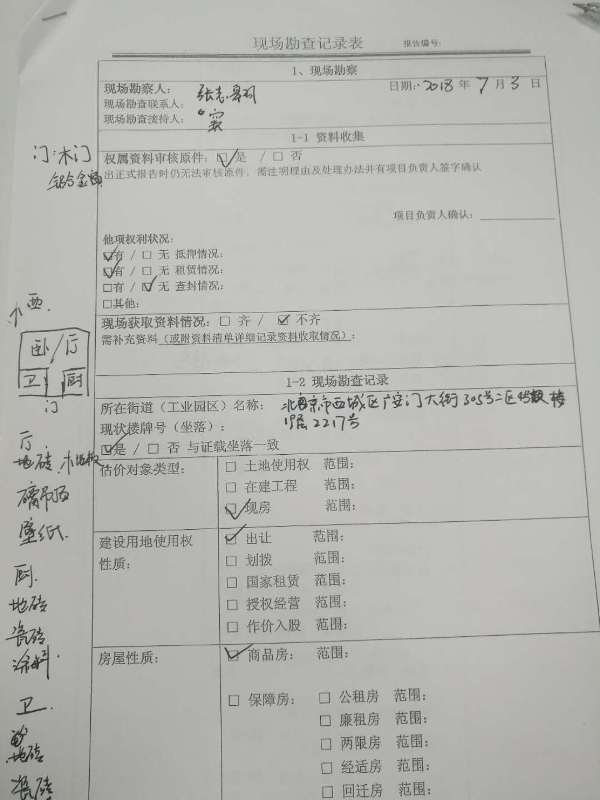 现场勘查记录表
报告编号:
1、现场勘察
现场勘察人:
日期: 2018 年 7 月 3 日
现场勘查联系人:
现场勘查接待人:
1-1 资料收集
权属资料审核原件: ☑ 是 / □ 否
出正式报告时仍无法审核原件，需注明理由及处理办法并有项目负责人签字确认
项目负责人确认:
他项权利状况:
☑有 / □ 无 抵押情况:
☑有 / □ 无 租赁情况:
□有 / ☑ 无 查封情况:
□其他:
现场获取资料情况: □ 齐 / ☑ 不齐
需补充资料（或附资料清单详细记录资料收取情况）:
1-2 现场勘查记录
所在街道（工业园区）名称: 北京市西城区广安门大街305号二区
楼
现状楼牌号（坐落）: 2217号
☑是 / □ 否 与证载坐落一致
估价对象类型:
□ 土地使用权 范围:
□ 在建工程 范围:
☑ 现房 范围:
建设用地使用权
性质:
☑ 出让 范围:
□ 划拨 范围:
□ 国家租赁 范围:
□ 授权经营 范围:
□ 作价入股 范围:
房屋性质:
☑ 商品房: 范围:
□ 保障房: □ 公租房 范围:
□ 廉租房 范围:
□ 两限房 范围:
□ 经适房 范围:
□ 回迁房 范围:
门:木门
铝合金窗
西
卧/厅
卫 厨
门
厅.
地砖 木地板
壁纸
厨.
地砖
瓷砖
涂料
卫.
地砖
瓷砖